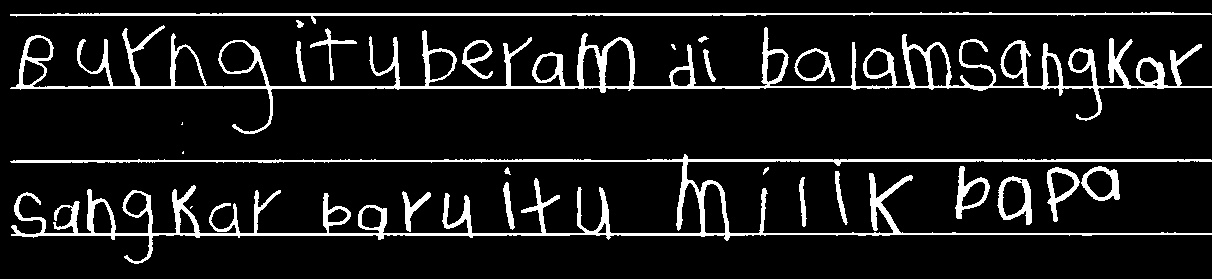 Burng itu beram di balam sangkar
sangkar baru itu milik bapa